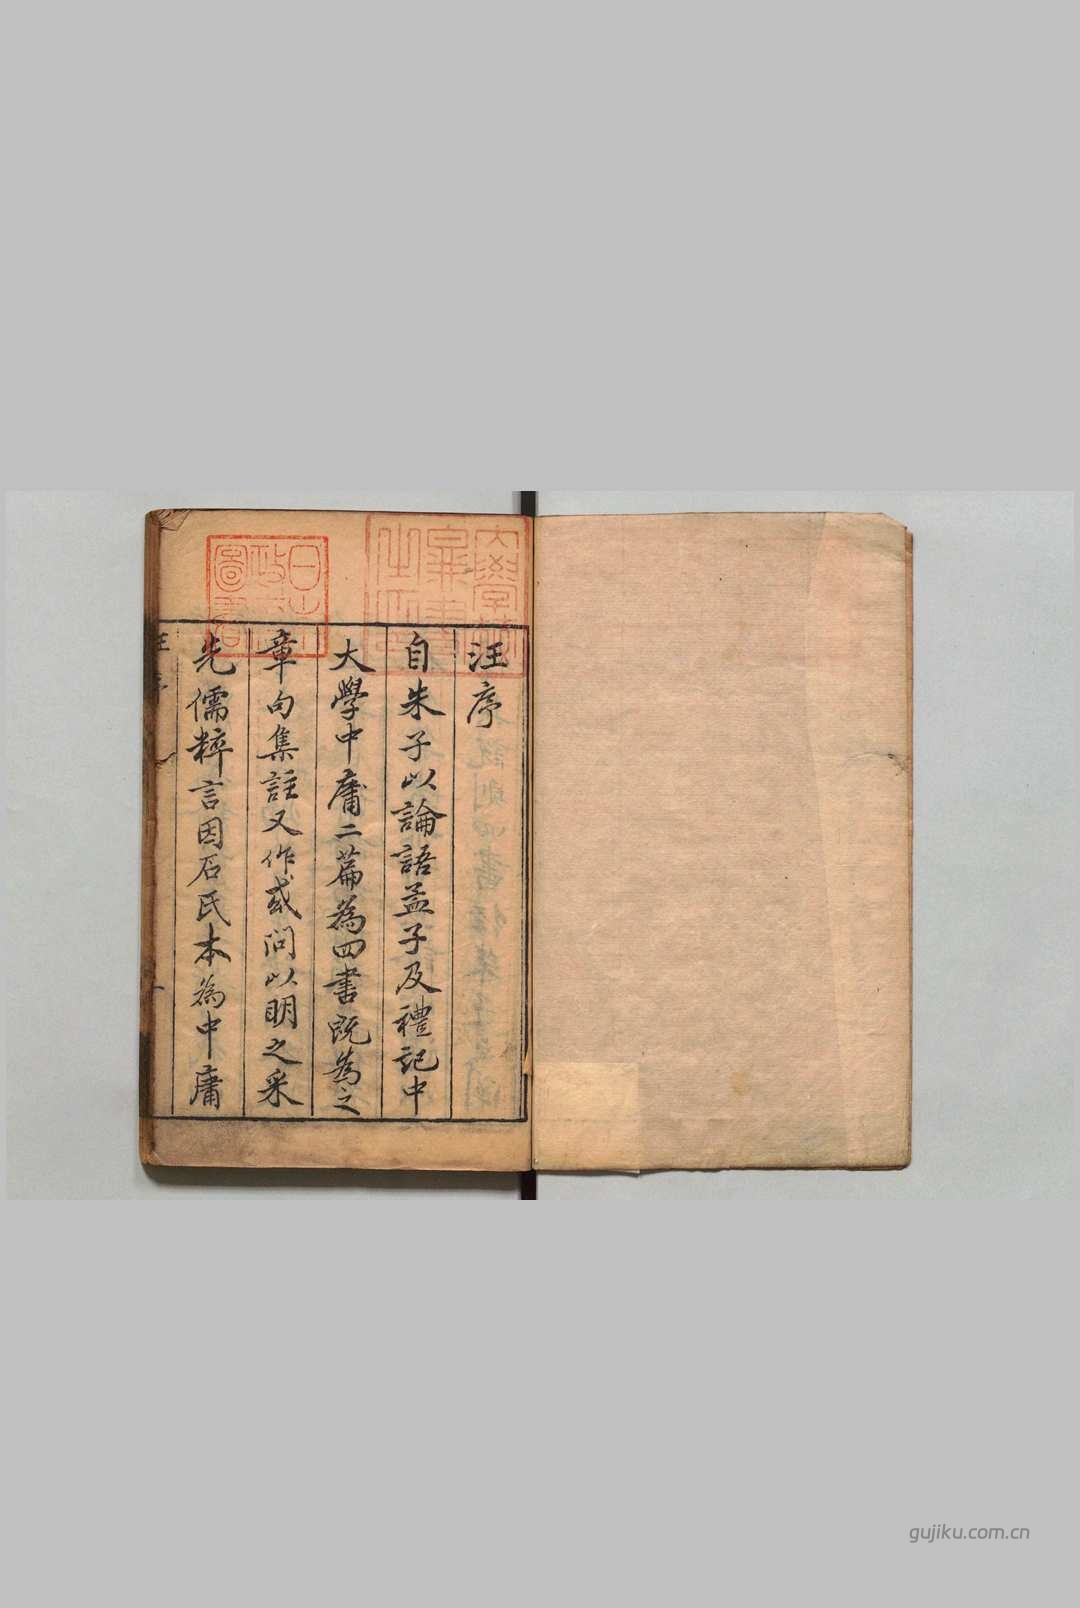 汪序
自朱子以論語孟子及禮記中
大學中庸二篇為四書既為之
章句集註又作或問以明之采
先儒粹言因石氏本為中庸
日本
政府
圖書
gujiku.com.cn